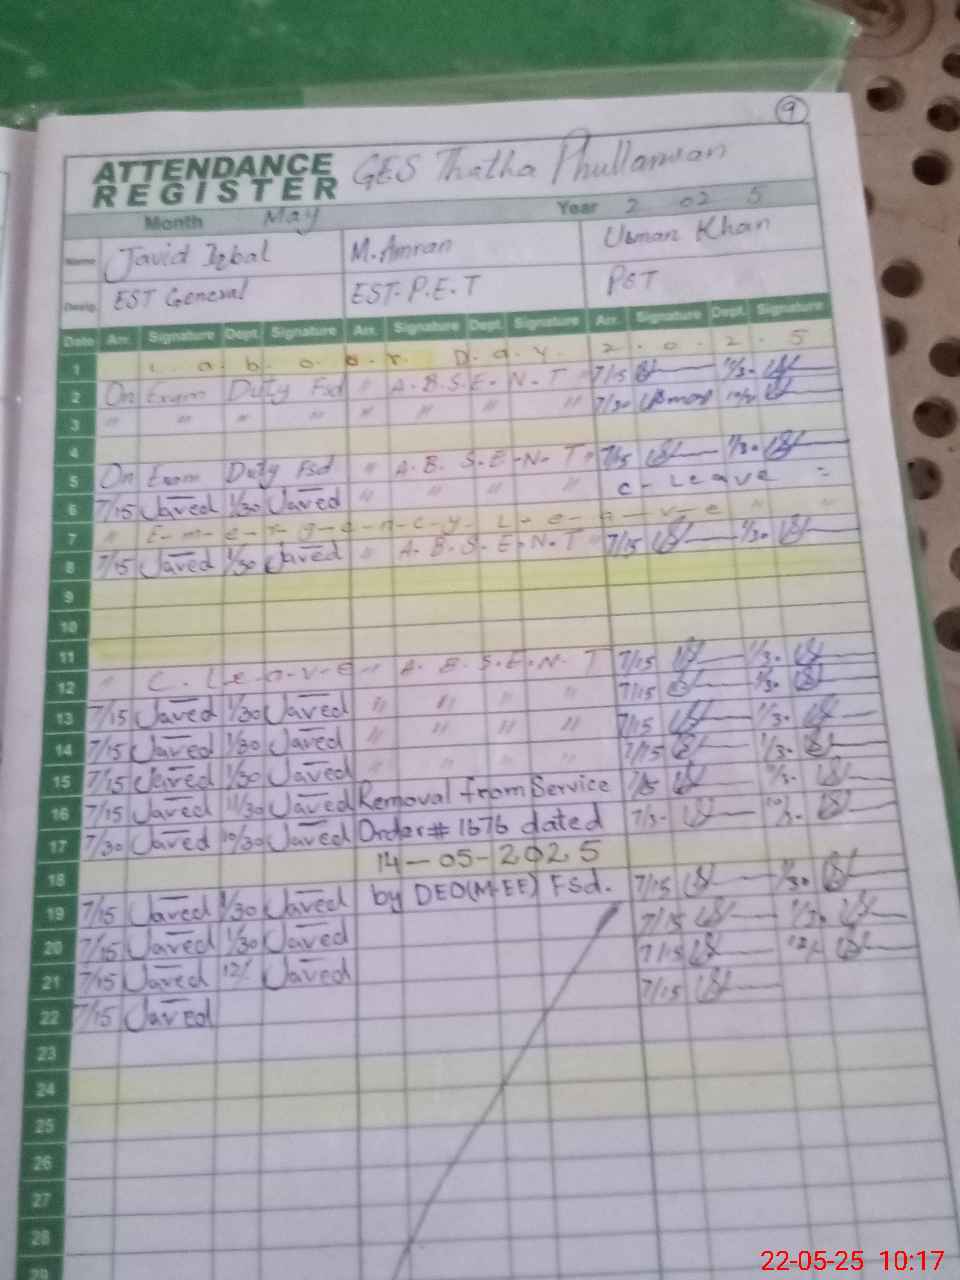 9
ATTENDANCE REGISTER GES Thatha Phullarwan
Month May Year 2 02 5
Name Javid Iqbal M. Amran Usman Khan
Desig EST General EST. P.E.T PST
Date Arr. Signature Dept. Signature Arr. Signature Dept. Signature Arr. Signature Dept. Signature
1 L a b o u r. D. a. y. 2. 0. 2. 5
2 On Exam Duty Fsd " A. B. S. E. N. T 7/15 11/30
3 " " " " " " " " 7/30 Usman
4
5 On Exam Duty Fsd " A. B. S. E. N. T 7/15 1/30
6 7/15 Javed 1/30 Javed " " " " C - Leave =
7 " E-m-e-r-g-e-n-c-y L-e-a-v-e " "
8 7/15 Javed 1/30 Javed " A. B. S. E. N. T " 7/15 1/30
9
10
11
12 " C. L-e-a-v-e " A. B. S. E. N. T 7/15 1/30
13 7/15 Javed 1/30 Javed " " " " 7/15 1/30
14 7/15 Javed 1/30 Javed " " " " 7/15 1/30
15 7/15 Javed 1/30 Javed " " " " 7/15 1/30
16 7/15 Javed 11/30 Javed Removal from Service 7/15
17 7/30 Javed 10/30 Javed Order # 1676 dated 7/30 10/30
18 14-05-2025
19 7/15 Javed 1/30 Javed by DEO(M-EE) Fsd. 7/15 1/30
20 7/15 Javed 1/30 Javed 7/15 1/30
21 7/15 Javed 12/ Javed 7/15 12/
22 7/15 Javed 7/15
23
24
25
26
27
28
29
22-05-25 10:17